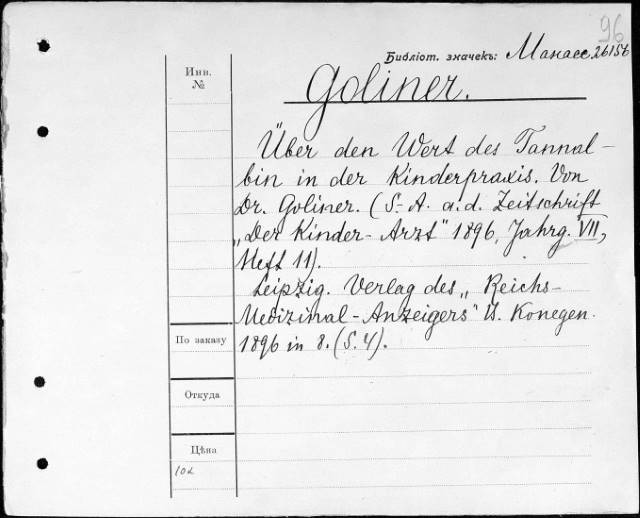 96
Библіот. значекъ: Манасс. 26156
Инв.
№
Goliner.
Über den Wert des Tannal-
bin in der Kinderpraxis. Von
Dr. Goliner. (S.-A. a. d. Zeitschrift
„Der Kinder-Arzt" 1896, Jahrg. VII,
Heft 11).
Leipzig. Verlag des „Reichs-
Medizinal-Anzeigers" B. Konegen.
1896 in 8. (S. 4).
По заказу
Откуда
Цѣна